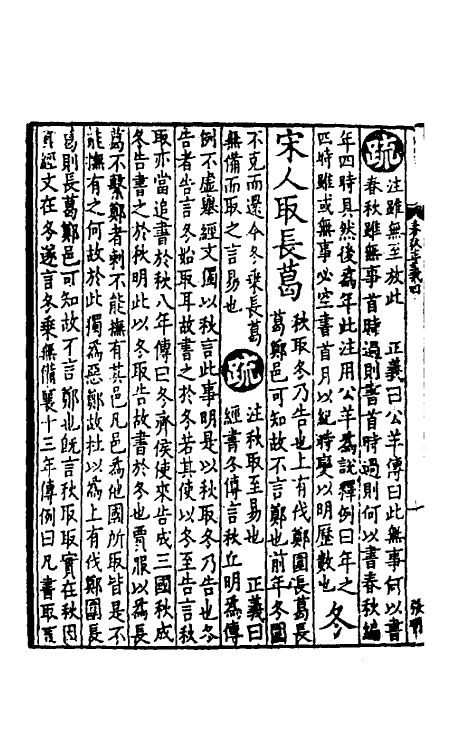 春秋正義四
疏
注雖無至放此　正義曰公羊傳曰此無事何以書
春秋雖無事首時過則書首時過則何以書春秋編
年四時具然後爲年此注用公羊爲說釋例曰年之
四時雖或無事必空書首月以紀時變以明歷數也
冬
宋人取長葛
秋取冬乃告也上有伐鄭圍長葛長
葛鄭邑可知故不言鄭也前年冬圍
不克而還今冬乘長葛
無備而取之言易也
疏
注秋取至易也　正義曰
經書冬傳言秋丘明爲傳
例不虛舉經文偭以秋言此事明是以秋取冬乃告也冬
告者告言冬始取耳故書之於冬若其使以冬至告言秋
取亦當追書於秋八年傳曰冬齊侯使來告成三國秋成
冬告書之於秋明此以冬取告故書於冬也賈服以爲長
葛不繫鄭者刺不能撫有其邑凡邑爲他國所取皆是不
能撫有之何故於此獨爲惡鄭故杜以爲上有伐鄭圍長
葛則長葛鄭邑可知故不言鄭也旣言秋取取實在秋因
經文在冬遂言冬乘無備襄十三年傳例曰凡書取言